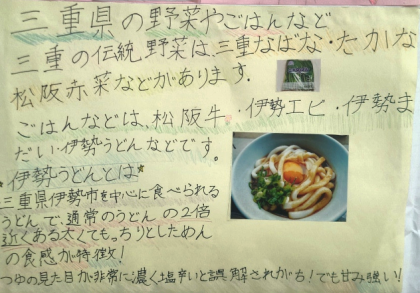 三重県の野菜やごはんなど
三重の伝統野菜は、三重なばな・たかな
松阪赤菜などがあります.
ごはんなどは、松阪牛・伊勢エビ・伊勢ま
だい・伊勢うどんなどです。
*伊勢うどんとは*
三重県伊勢市を中心に食べられる
うどんで通常のうどんの2倍
近くある太くてもっちりとしためん
の食感が特徴!
つゆの見た目が非常に濃く塩辛いと誤解されがち!でも甘み強い!